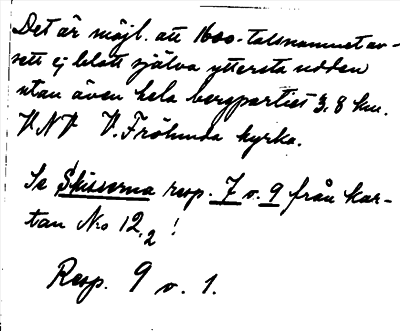 Det är möjl. att 1600-talsnamnet av-
sett ej blott själva yttersta udden
utan även hela bergpartiet 3,8 km.
VNV V. Frölunda kyrka.
Se Skisserna resp. 7 o. 9 från kar-
tan No 12,2!
Resp. 9 o. 1.